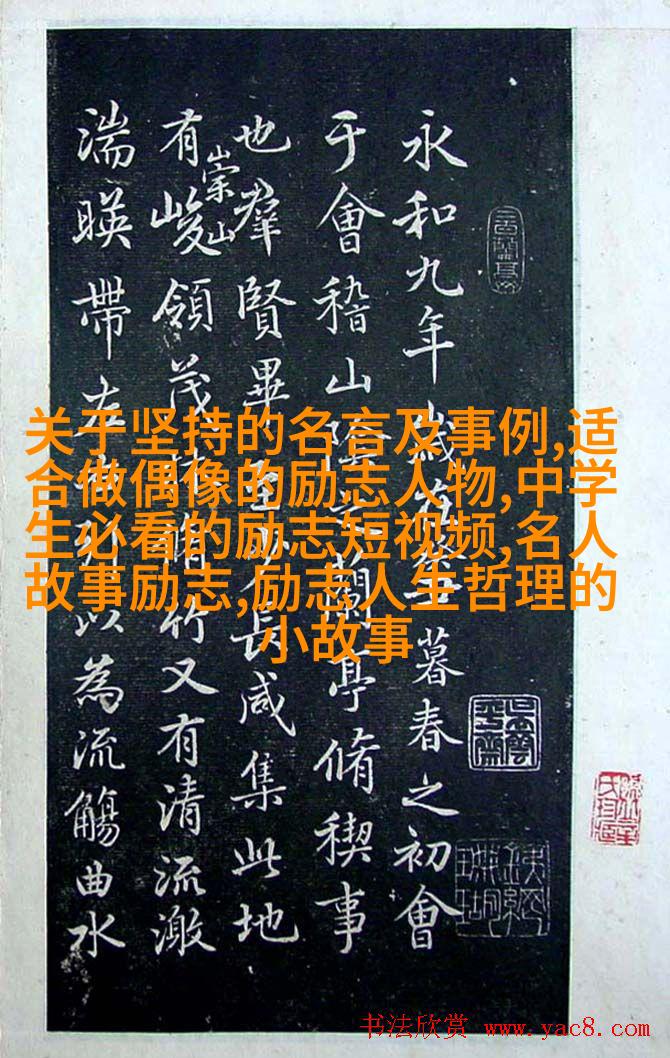 永和九年歲在癸丑暮春之初會
于會稽山陰之蘭亭脩稧事
也羣賢畢至少長咸集此地
有崇山峻領茂林脩竹又有清流激
湍暎帶左右列以為流觴曲水
关于坚持的名言及事例,适
合做偶像的励志人物,中学
生必看的励志短视频,名人
故事励志,励志人生哲理的
小故事
书法欣赏 www.yac8.com